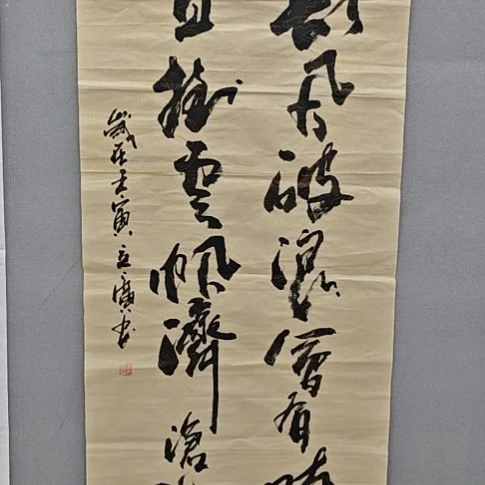 長風破浪會有時
直掛雲帆濟滄海
歲在壬寅立廣書